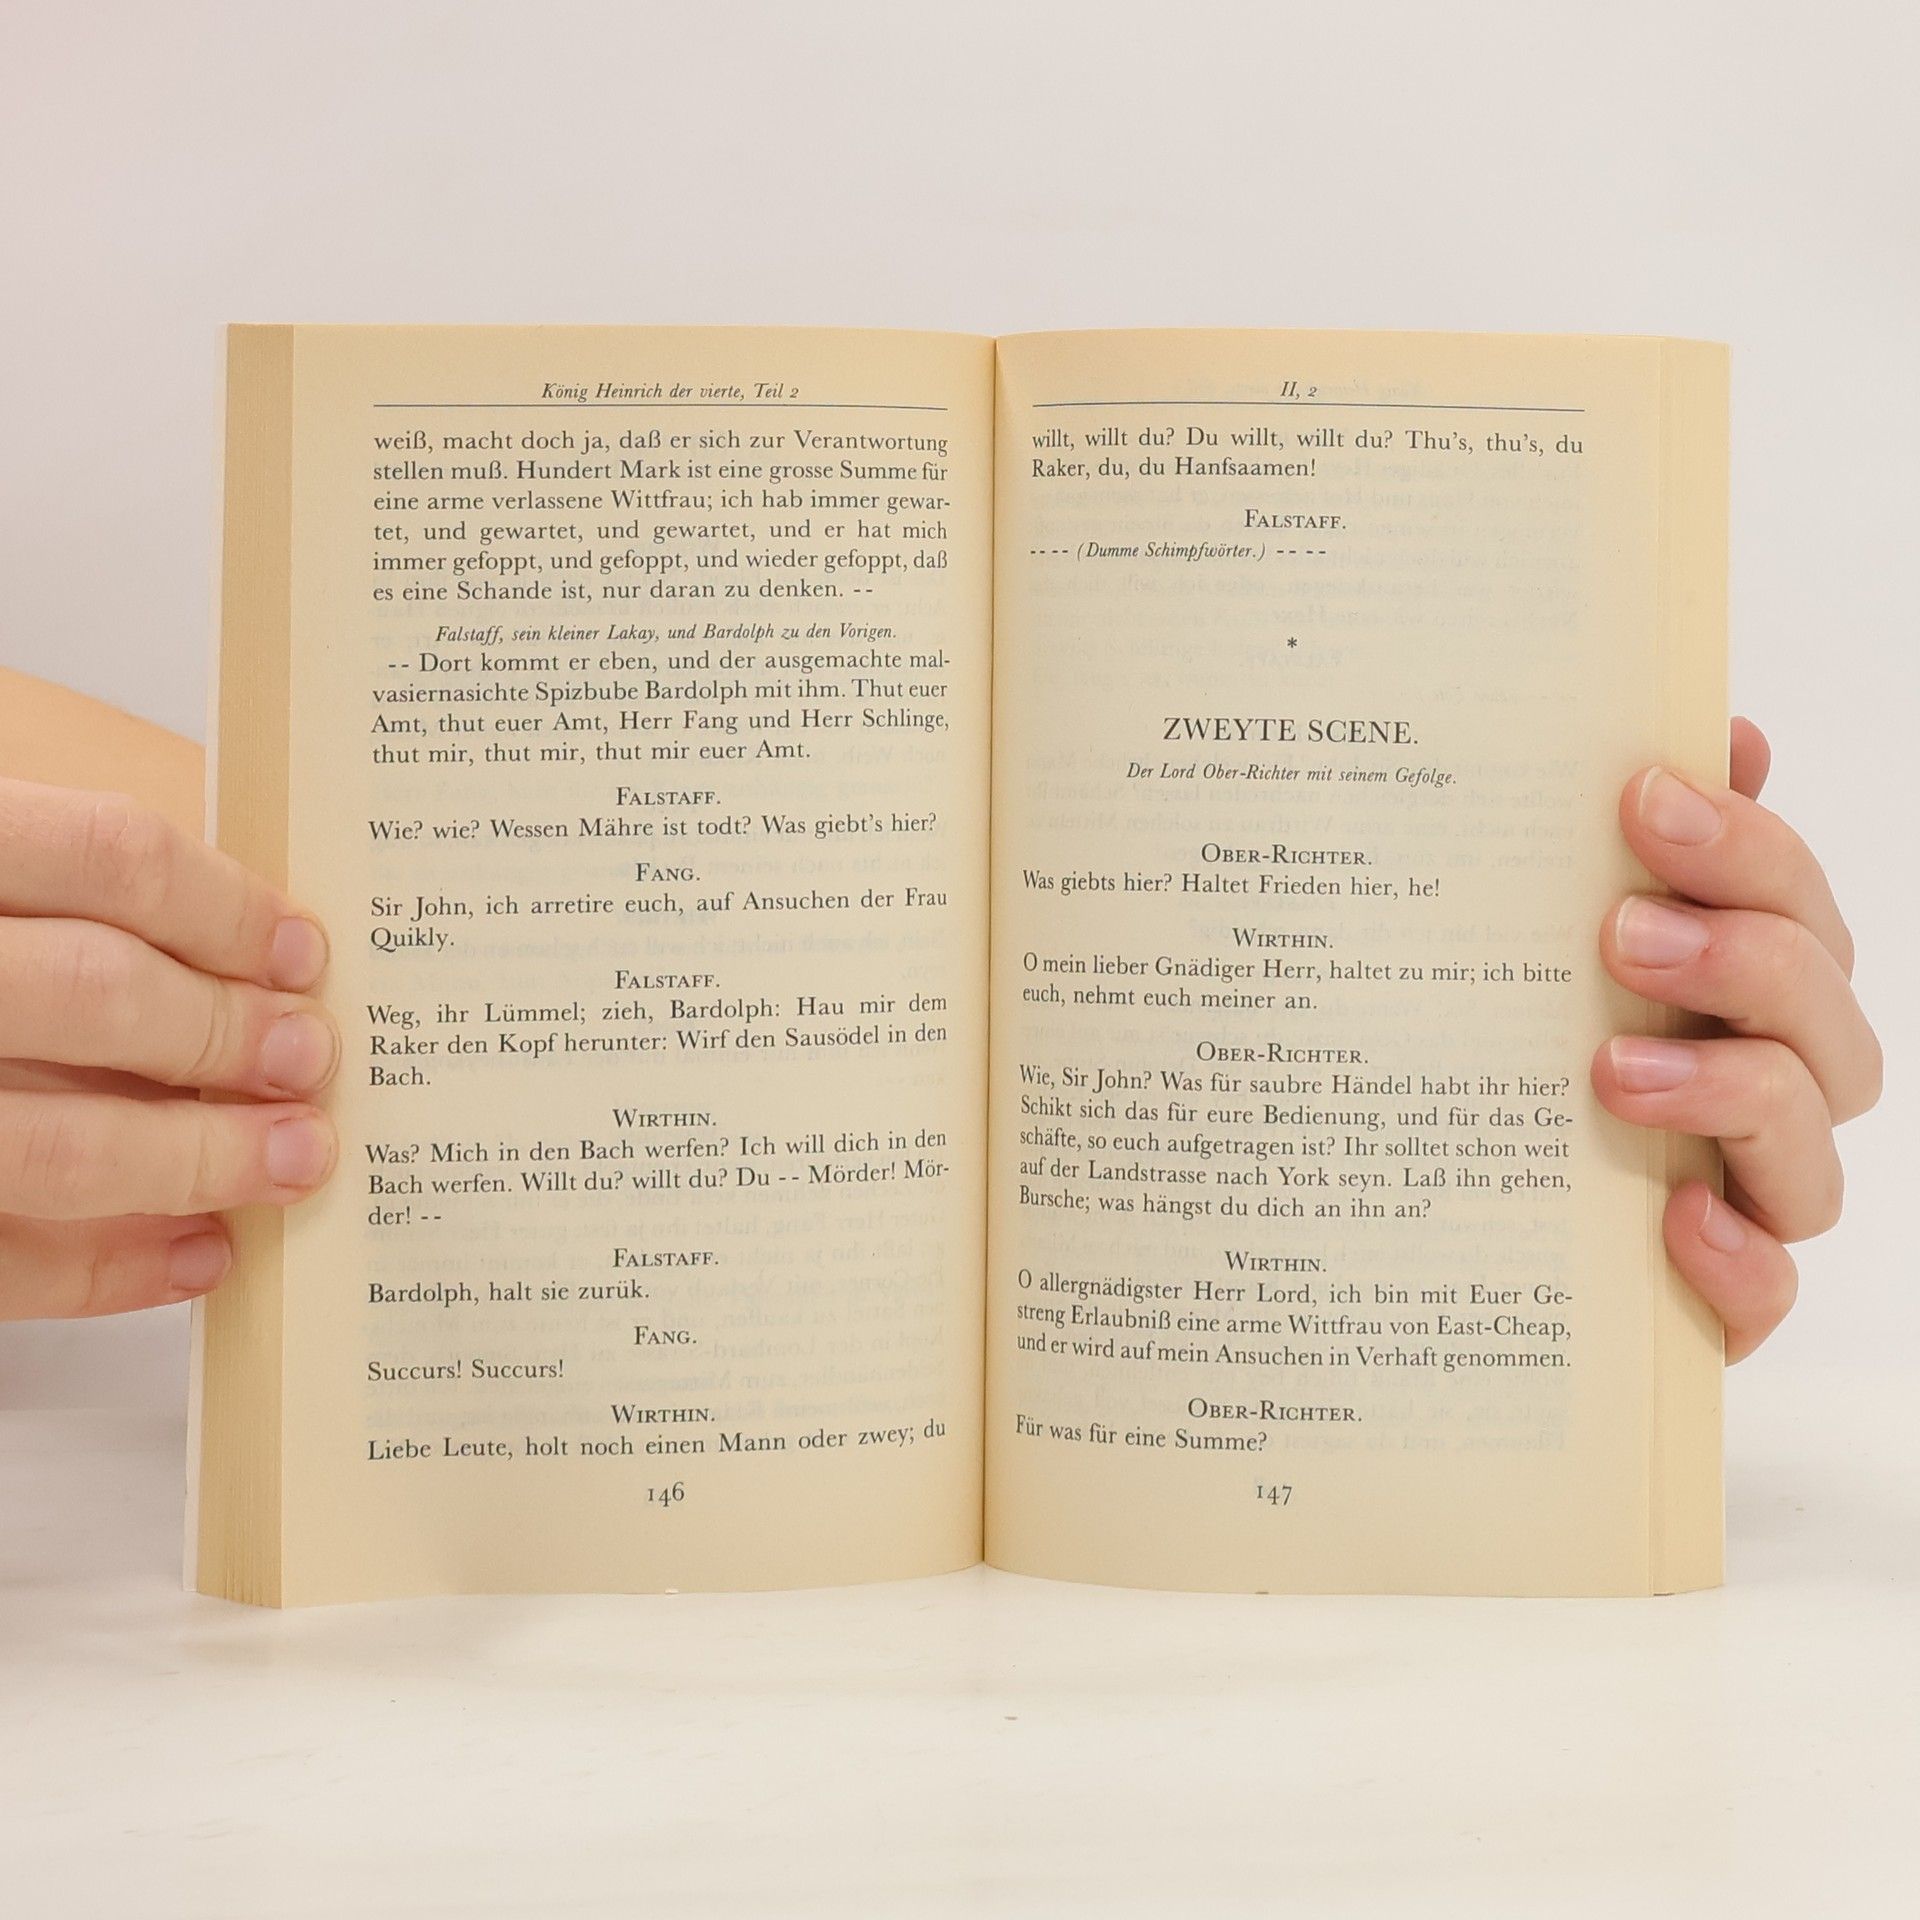 König Heinrich der vierte, Teil 2
weiß, macht doch ja, daß er sich zur Verantwortung
stellen muß. Hundert Mark ist eine grosse Summe für
eine arme verlassene Wittfrau; ich hab immer gewar-
tet, und gewartet, und gewartet, und er hat mich
immer gefoppt, und gefoppt, und wieder gefoppt, daß
es eine Schande ist, nur daran zu denken. --
Falstaff, sein kleiner Lakay, und Bardolph zu den Vorigen.
-- Dort kommt er eben, und der ausgemachte mal-
vasiernasichte Spizbube Bardolph mit ihm. Thut euer
Amt, thut euer Amt, Herr Fang und Herr Schlinge,
thut mir, thut mir, thut mir euer Amt.
FALSTAFF.
Wie? wie? Wessen Mähre ist todt? Was giebt's hier?
FANG.
Sir John, ich arretire euch, auf Ansuchen der Frau
Quikly.
FALSTAFF.
Weg, ihr Lümmel; zieh, Bardolph: Hau mir dem
Raker den Kopf herunter: Wirf den Sausödel in den
Bach.
WIRTHIN.
Was? Mich in den Bach werfen? Ich will dich in den
Bach werfen. Willt du? willt du? Du -- Mörder! Mör-
der! --
FALSTAFF.
Bardolph, halt sie zurük.
FANG.
Succurs! Succurs!
WIRTHIN.
Liebe Leute, holt noch einen Mann oder zwey; du
146
II, 2
willt, willt du? Du willt, willt du? Thu's, thu's, du
Raker, du, du Hanfsaamen!
FALSTAFF.
---- (Dumme Schimpfwörter.) -- --
*
ZWEYTE SCENE.
Der Lord Ober-Richter mit seinem Gefolge.
OBER-RICHTER.
Was giebts hier? Haltet Frieden hier, he!
WIRTHIN.
O mein lieber Gnädiger Herr, haltet zu mir; ich bitte
euch, nehmt euch meiner an.
OBER-RICHTER.
Wie, Sir John? Was für saubre Händel habt ihr hier?
Schikt sich das für eure Bedienung, und für das Ge-
schäfte, so euch aufgetragen ist? Ihr solltet schon weit
auf der Landstrasse nach York seyn. Laß ihn gehen,
Bursche; was hängst du dich an ihn an?
WIRTHIN.
O allergnädigster Herr Lord, ich bin mit Euer Ge-
streng Erlaubniß eine arme Wittfrau von East-Cheap,
und er wird auf mein Ansuchen in Verhaft genommen.
OBER-RICHTER.
Für was für eine Summe?
147